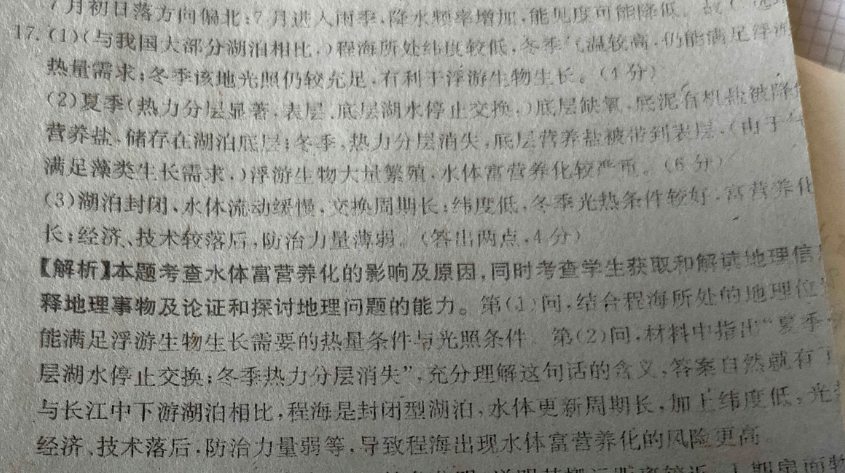 7月初日落方向偏北;7月进入雨季,降水频率增加,能见度可能降低。故
17.(1)(与我国大部分湖泊相比,)程海所处纬度较低,冬季气温较高,仍能满足浮游
热量需求;冬季该地光照仍较充足,有利于浮游生物生长。(4分)
(2)夏季(热力分层显著,表层、底层湖水停止交换,)底层缺氧,底泥有机盐被降
营养盐、储存在湖泊底层;冬季,热力分层消失,底层营养盐被带到表层,(由于
满足藻类生长需求,)浮游生物大量繁殖,水体富营养化较严重。(6分)
(3)湖泊封闭、水体流动缓慢,交换周期长;纬度低,冬季光热条件较好,富营养化
长;经济、技术较落后,防治力量薄弱。(答出两点,4分)
【解析】本题考查水体富营养化的影响及原因,同时考查学生获取和解读地理信
释地理事物及论证和探讨地理问题的能力。第(1)问,结合程海所处的地理位
能满足浮游生物生长需要的热量条件与光照条件。第(2)问,材料中指出“夏季
层湖水停止交换;冬季热力分层消失”,充分理解这句话的含义,答案自然就有了
与长江中下游湖泊相比,程海是封闭型湖泊,水体更新周期长,加上纬度低,光
经济、技术落后,防治力量弱等,导致程海出现水体富营养化的风险更高